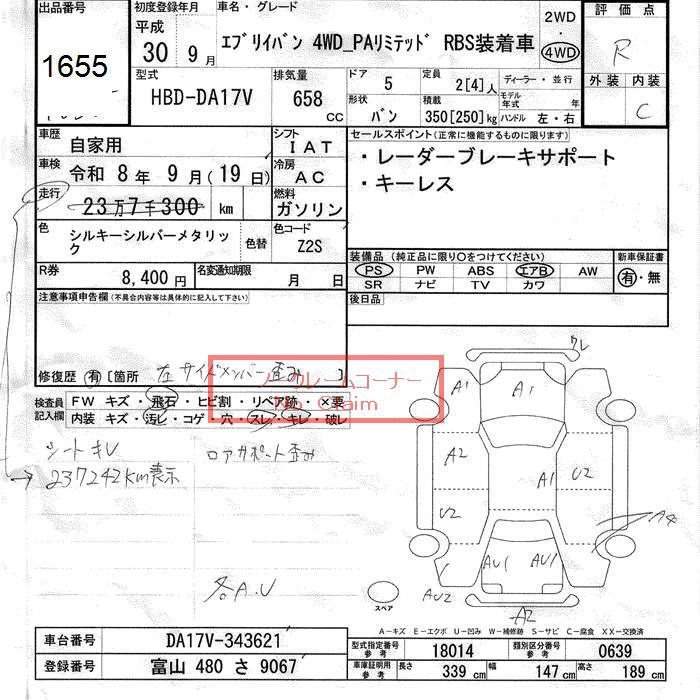 出品番号
1655
初度登録年月
平成
30 9月
車名・グレード
エブリイバン 4WD_PAリミテッド RBS装着車
2WD
・
4WD
評価点
R
外装 内装
C
型式
HBD-DA17V
排気量
658 CC
ドア 5
形状 バン
定員 2[4]人
積載 350[250]kg
ディーラー・並行
モデル年式 年
ハンドル 左・右
車歴 自家用
シフト IAT
車検 令和 8年 9月(19日)
冷房 AC
走行 23万7千300 km
燃料 ガソリン
色 シルキーシルバーメタリック
色替
色コード Z2S
R券 8,400円
名変通知期限 月 日
セールスポイント(正常に機能するものに限ります)
・レーダーブレーキサポート
・キーレス
装備品(純正品に限り○をつけてください)
PS PW ABS エアB AW
SR ナビ TV カワ
新車保証書
有・無
後日品
注意事項申告欄(不具合内容等は具体的に記入して下さい)
修復歴 有 [箇所 左サイドメンバー歪み ]
ノークレームコーナー
No Claim
検査員記入欄
FW キズ・飛石・ヒビ割・リペア跡・×要
内装 キズ・汚レ・コゲ・穴・スレ・キレ・破レ
シートキレ
237242km表示
ロアサポート歪み
各A.U
クレ
A1
A1
A2
A1
U2
U2
A4
AU1
AU1
AU2
A2
スペア
A-キズ E-エクボ U-凹み W-補修跡 S-サビ C-腐食 XX-交換済
車台番号 DA17V-343621
登録番号 富山 480 さ 9067
型式指定番号 参考 18014
類別区分番号 参考 0639
車庫証明用 参考 長さ 339 cm 幅 147 cm 高さ 189 cm